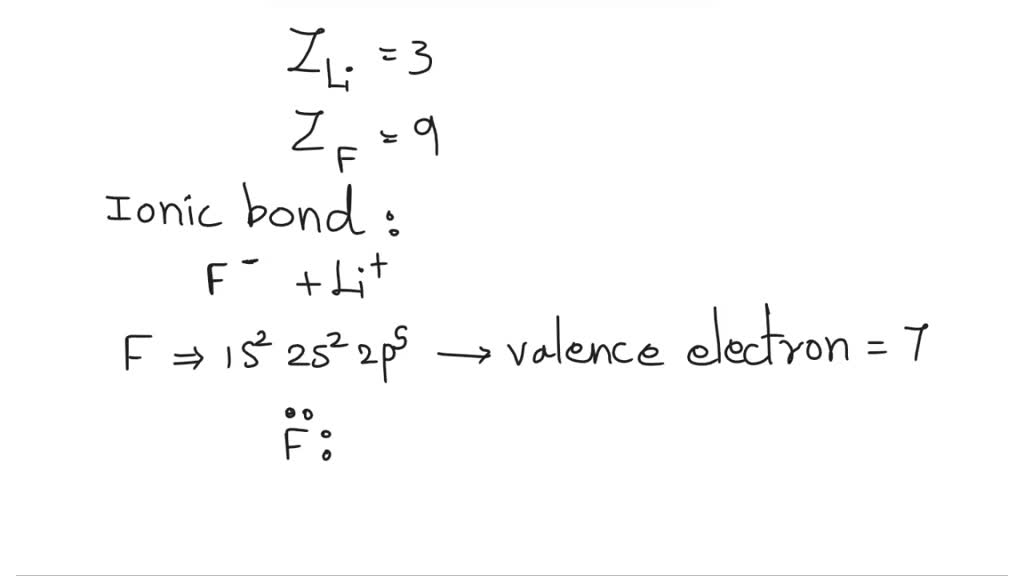 Z_Li = 3
Z_F = 9
Ionic bond :
F⁻ + Li⁺
F ⇒ 1S² 2S² 2p⁵ → valence electron = 7
F̈ :